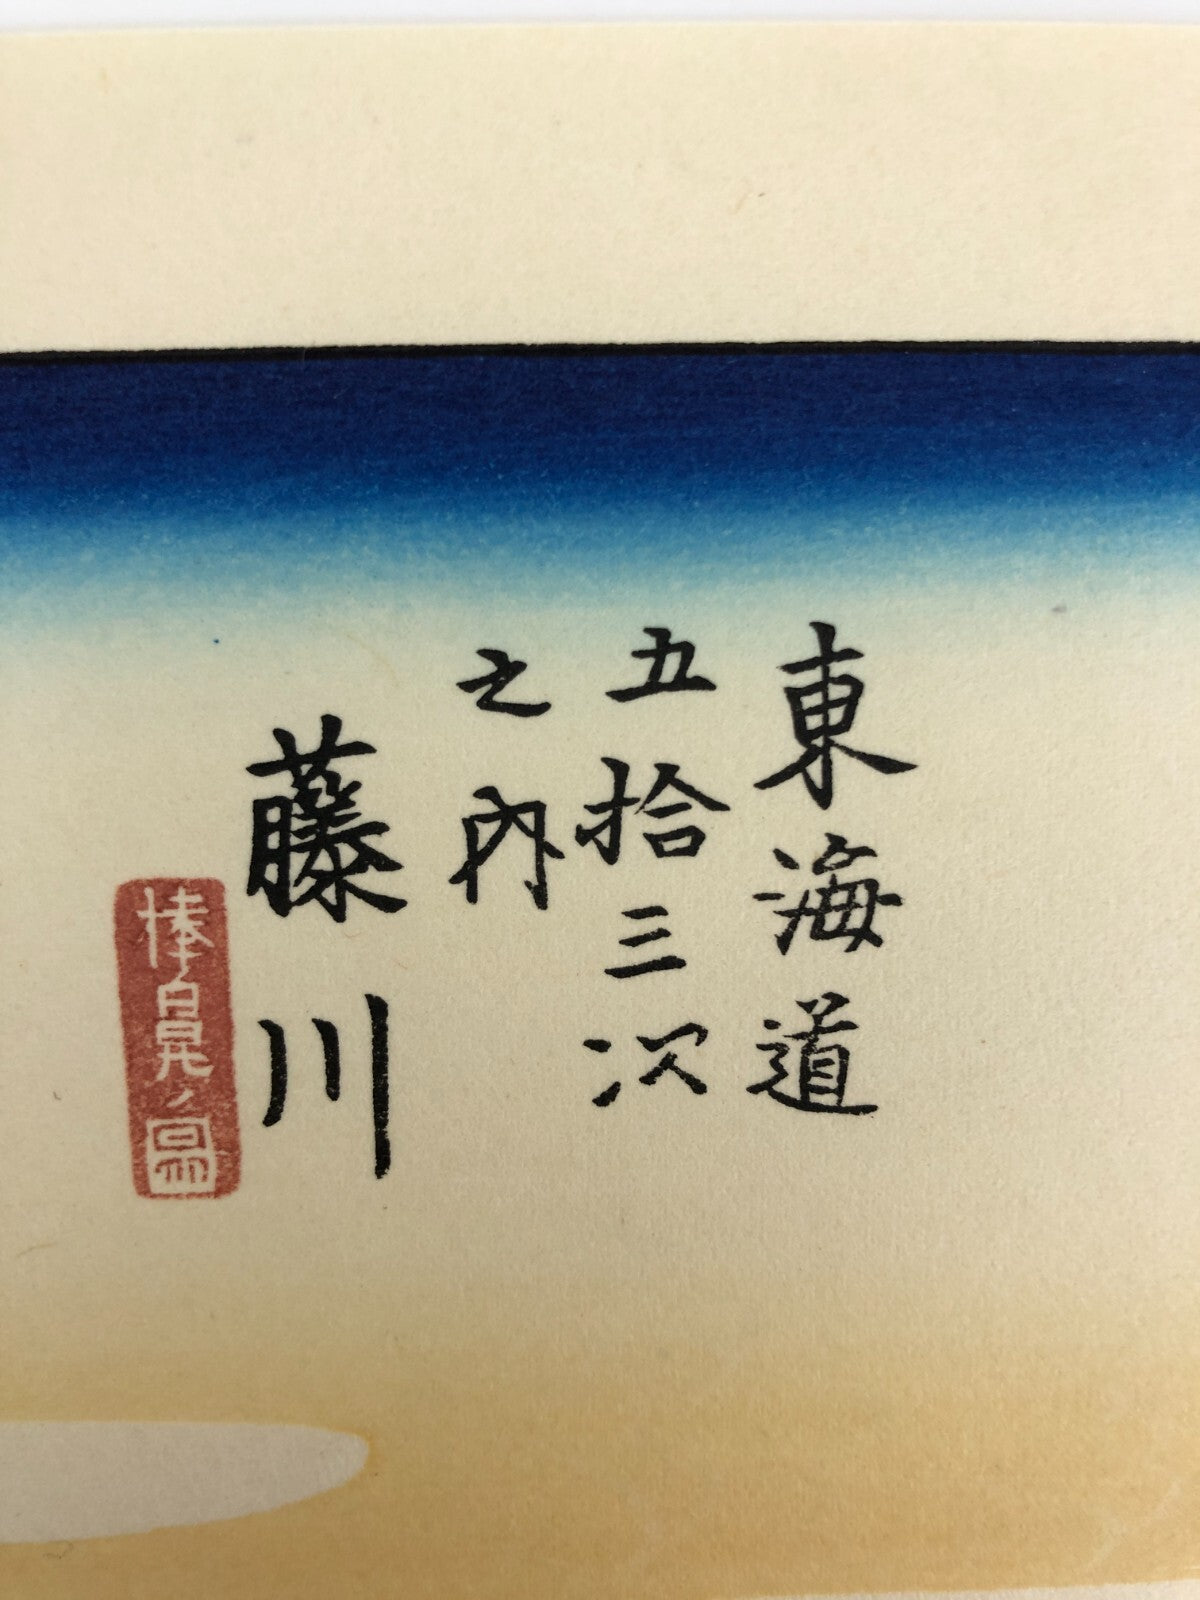 東海道
五拾三次
之内
藤川
棒鼻ノ圖